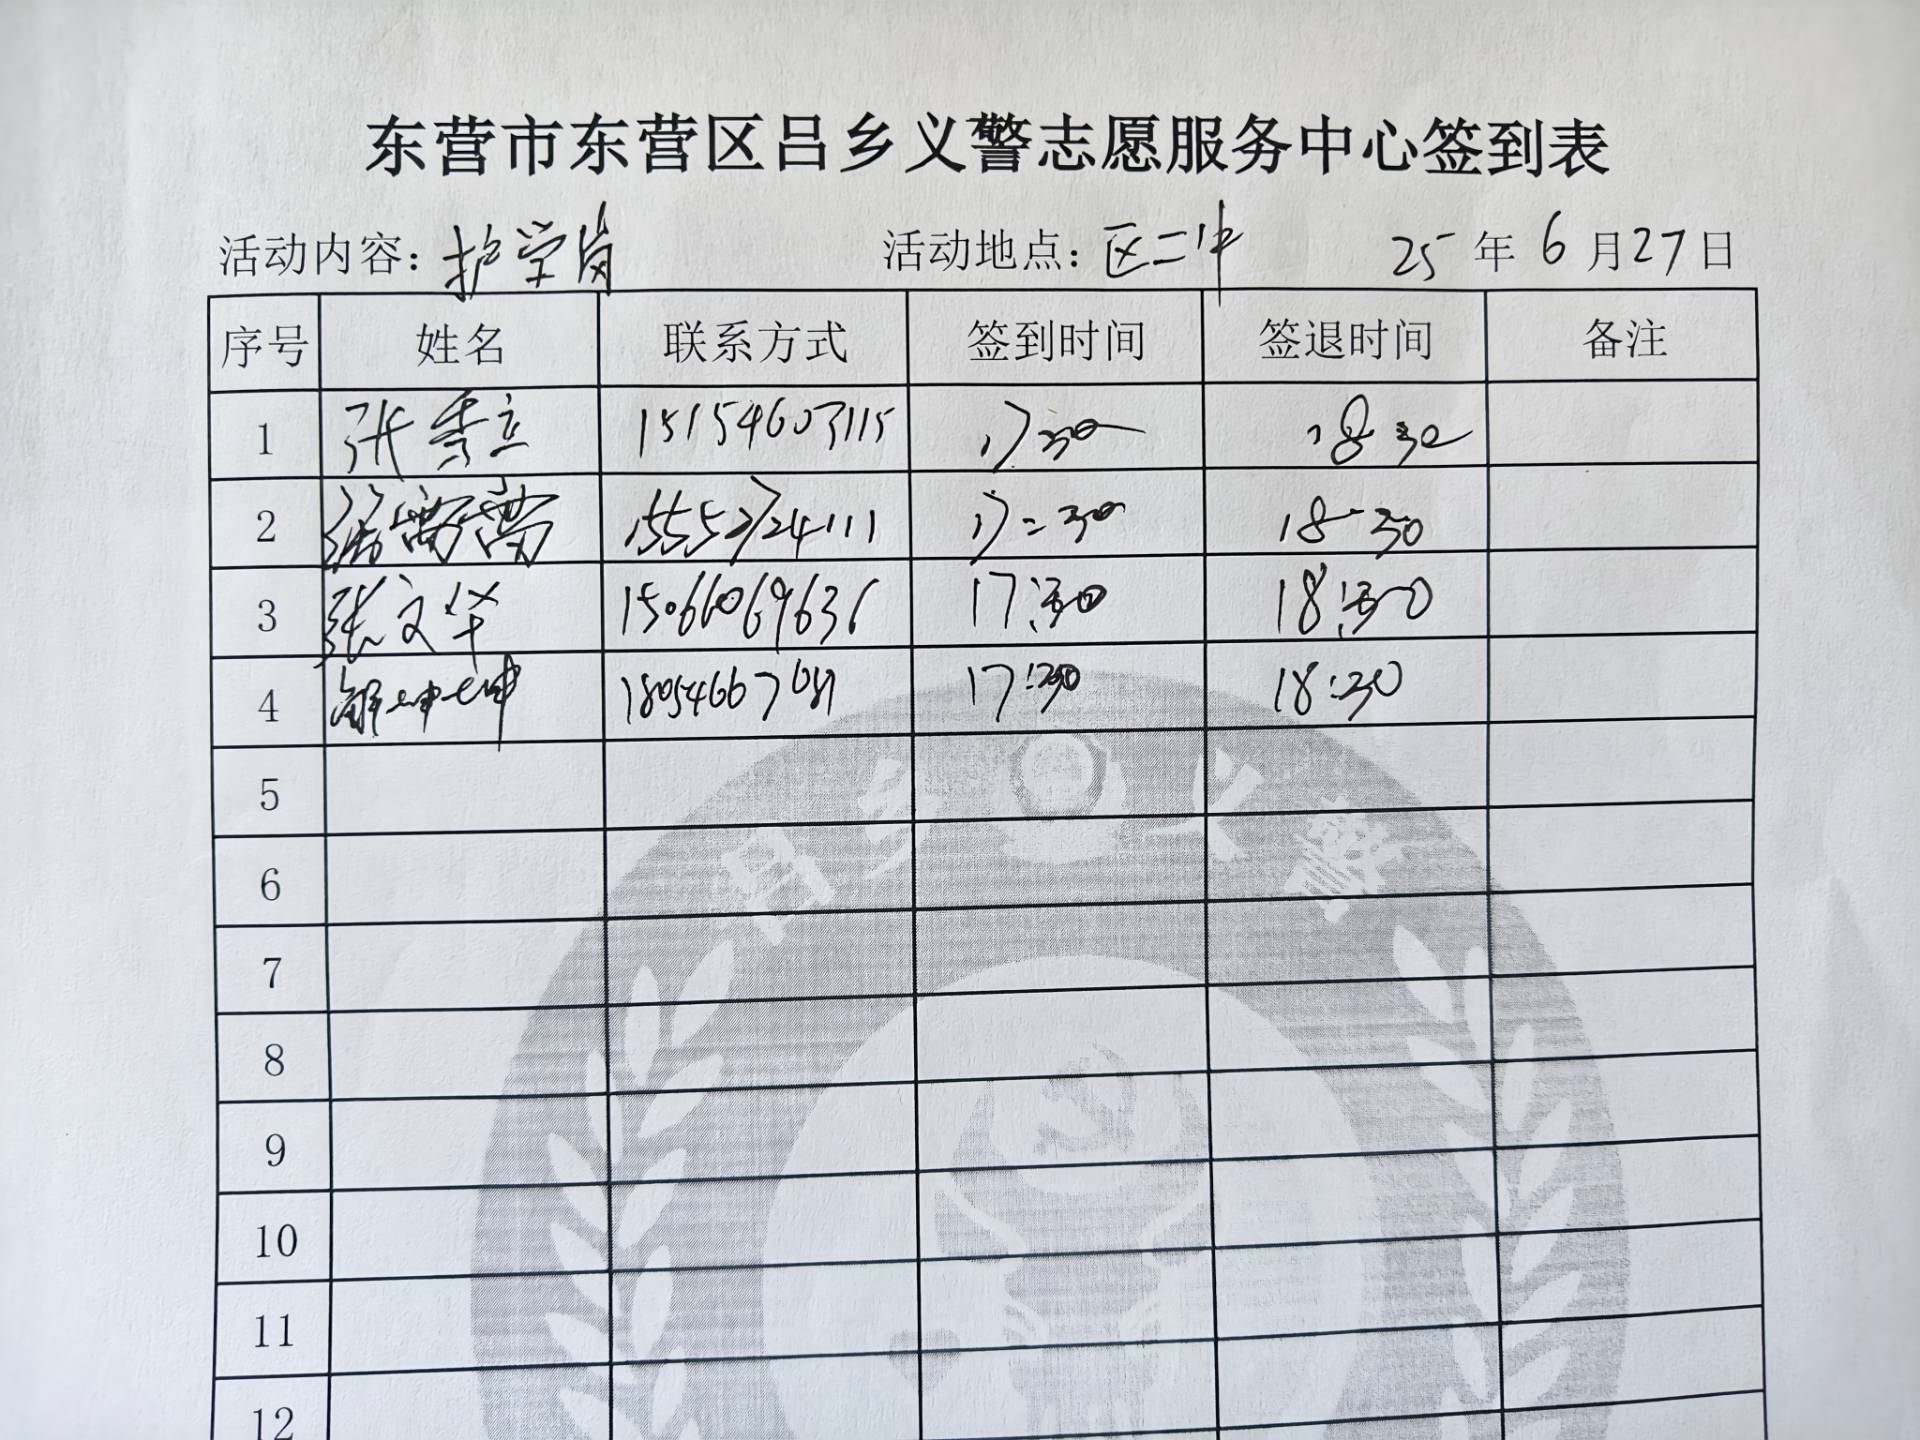 东营市东营区吕乡义警志愿服务中心签到表
活动内容：护学岗 活动地点：区二中 25年6月27日
序号 姓名 联系方式 签到时间 签退时间 备注
1 张秀立 15154603115 17:30 18:30
2 15552724111 17:30 18:30
3 张文华 15066069636 17:30 18:30
4 解坤坤 18054667681 17:30 18:30
5
6
7
8
9
10
11
12
吕乡义警